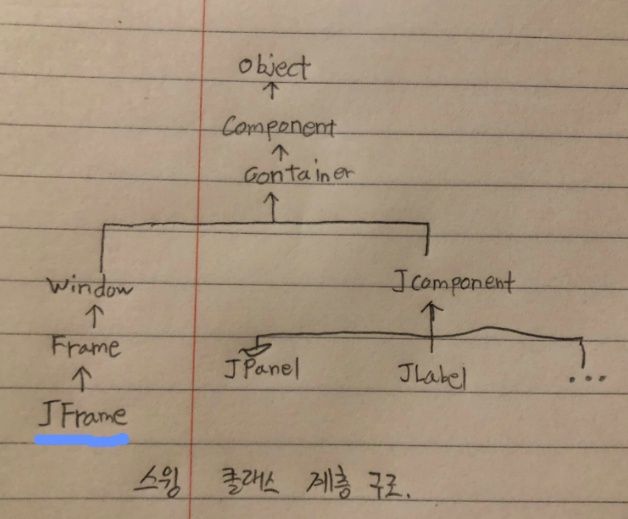 Object
Component
Container
Window
Jcomponent
Frame
JPanel
JLabel
...
JFrame
스윙 클래스 계층 구조.